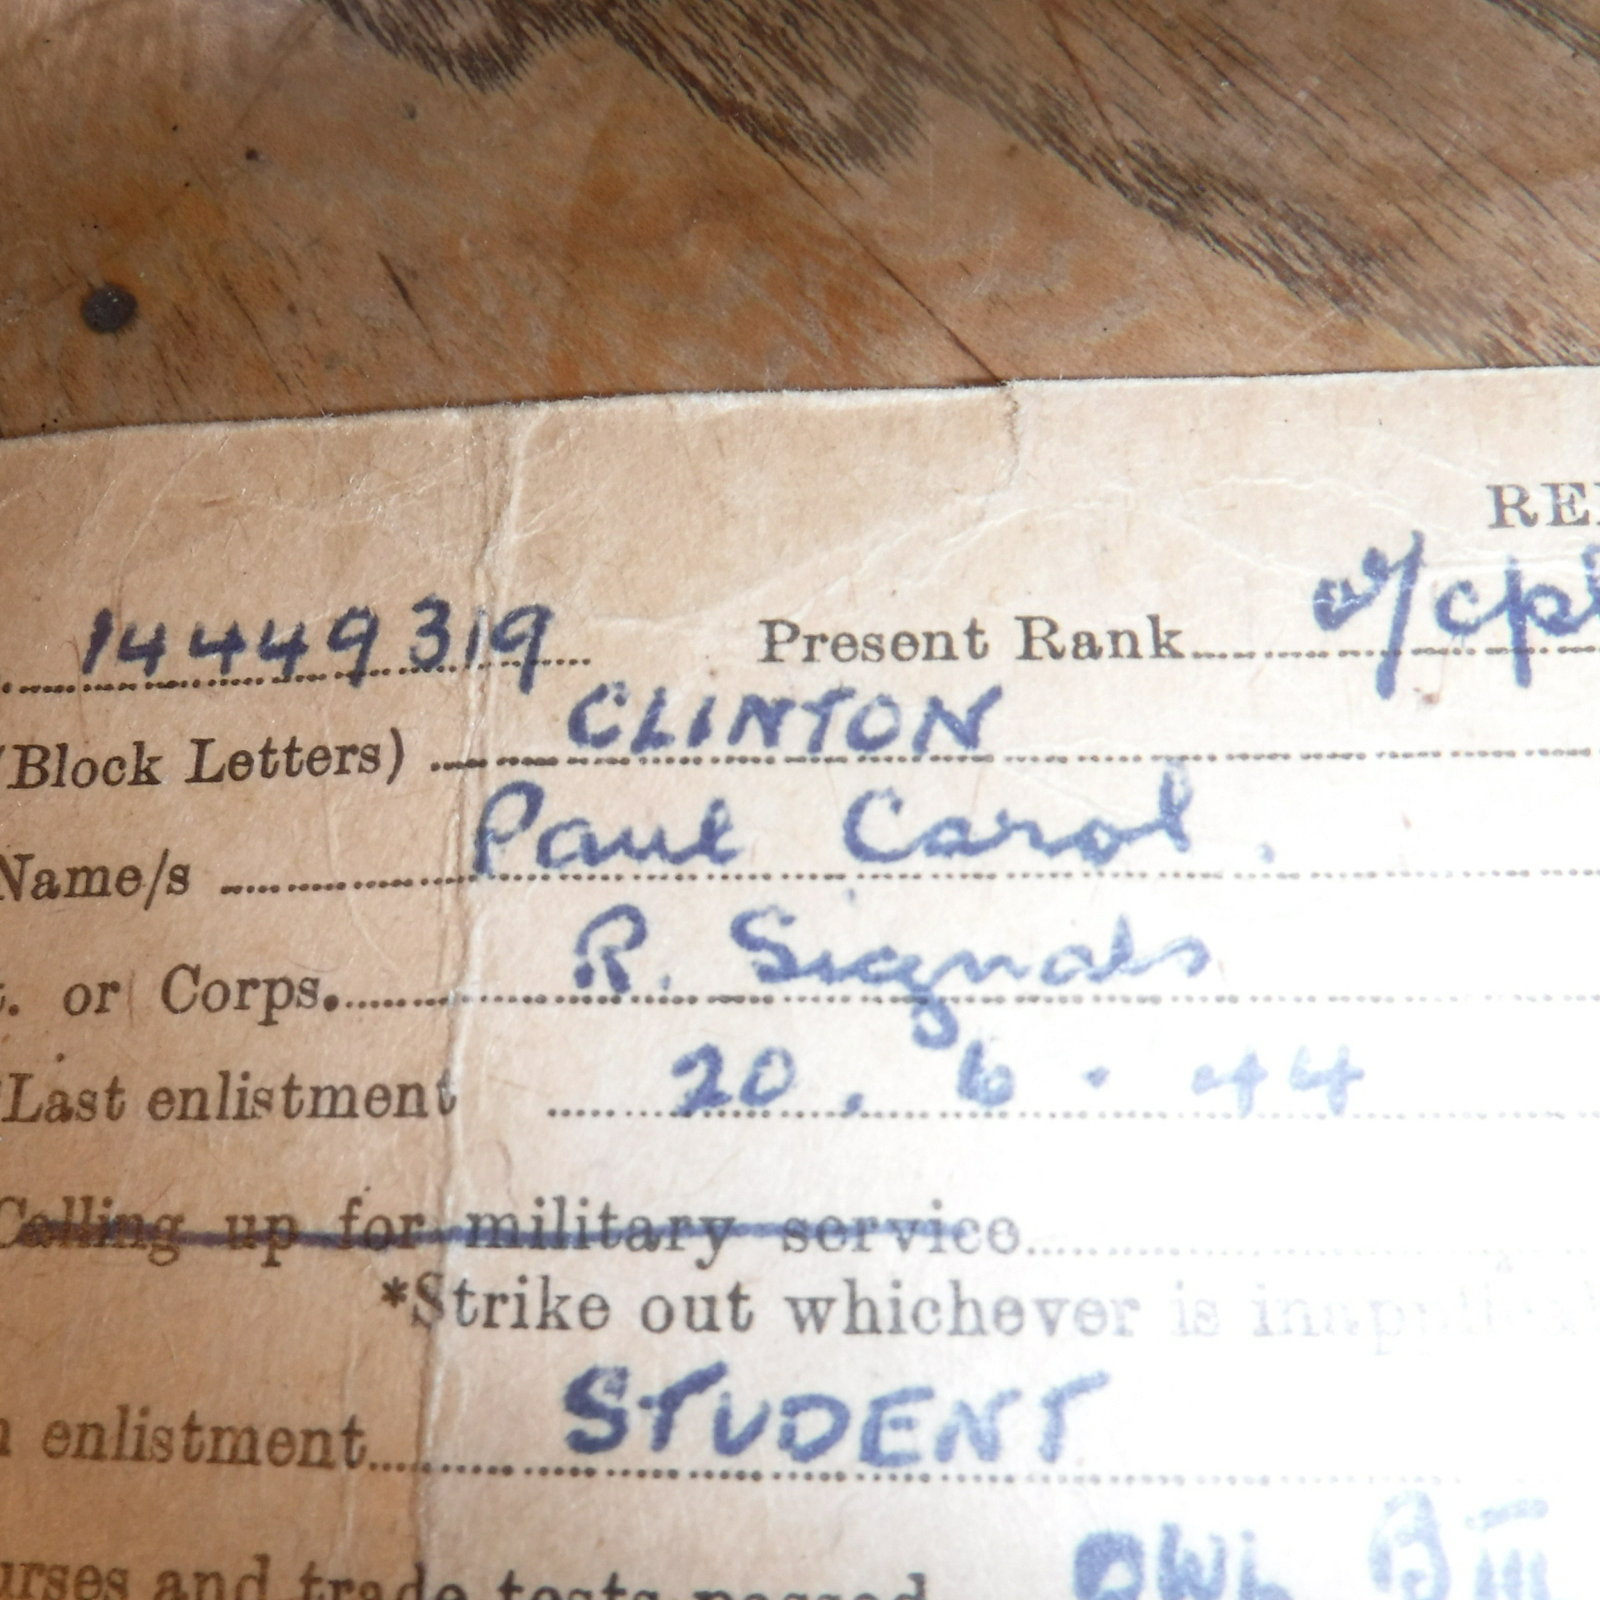 14449319 Present Rank
(Block Letters) CLINTON
Name/s Paul Carol.
or Corps. R. Signals
Last enlistment 20. 6. 44
Calling up for military service
*Strike out whichever is
enlistment STUDENT
and trade tests passed OWL B III